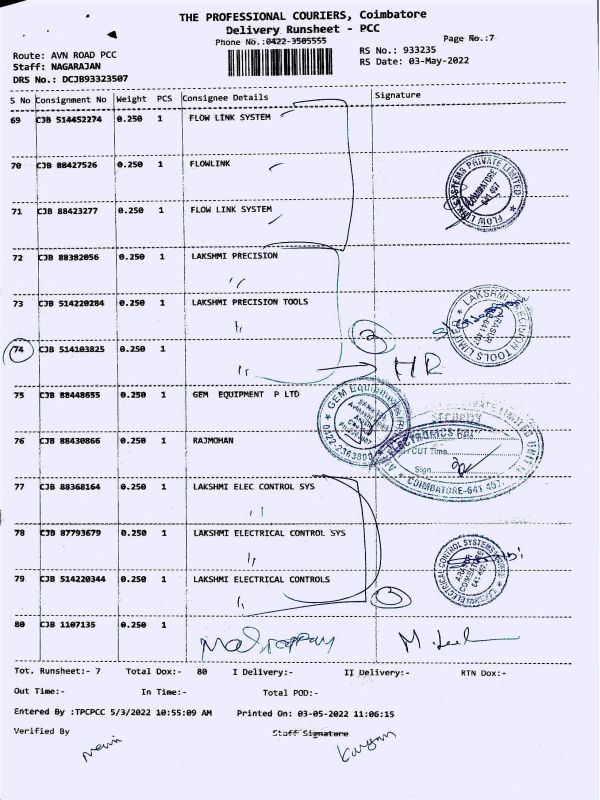 THE PROFESSIONAL COURIERS, Coimbatore
Delivery Runsheet - PCC
Phone No.:0422-3505555
Page No.:7
Route: AVN ROAD PCC
RS No.: 933235
Staff: NAGARAJAN
RS Date: 03-May-2022
DRS No.: DCJB93323507
S No Consignment No Weight PCS Consignee Details Signature
69 CJB 514452274 0.250 1 FLOW LINK SYSTEM
70 CJB 88427526 0.250 1 FLOWLINK
71 CJB 88423277 0.250 1 FLOW LINK SYSTEM
FLOW LINK SYSTEMS PRIVATE LIMITED
COIMBATORE
641 407
72 CJB 88382056 0.250 1 LAKSHMI PRECISION
73 CJB 514220284 0.250 1 LAKSHMI PRECISION TOOLS
LAKSHMI PRECISION TOOLS LIMITED
ARASUR
641 407
74 CJB 514103825 0.250 1
HR
75 CJB 88448655 0.250 1 GEM EQUIPMENT P LTD
GEM Equipments
SECURITY
76 CJB 88430866 0.250 1 RAJMOHAN
ELECTRONICS
OUT Time
Sign
COIMBATORE-641 457.
77 CJB 88368164 0.250 1 LAKSHMI ELEC CONTROL SYS
78 CJB 87793679 0.250 1 LAKSHMI ELECTRICAL CONTROL SYS
LAKSHMI ELECTRICAL CONTROL SYSTEMS LIMITED
ARASUR
COIMBATORE
641 407
79 CJB 514220344 0.250 1 LAKSHMI ELECTRICAL CONTROLS
80 CJB 1107135 0.250 1
Tot. Runsheet:- 7 Total Dox:- 80 I Delivery:- II Delivery:- RTN Dox:-
Out Time:- In Time:- Total POD:-
Entered By :TPCPCC 5/3/2022 10:55:09 AM Printed On: 03-05-2022 11:06:15
Verified By Staff Signature